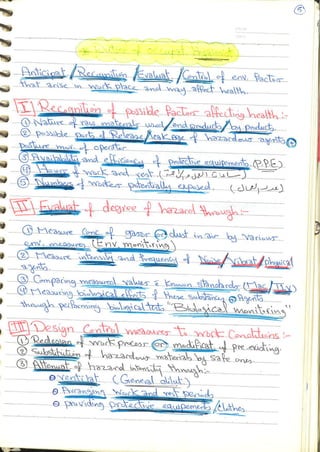 Anticipat / Recognition / Evaluat / Control of env. Factor
that arise in work place and may affect health.
I Recognition of possible Factors affecting health :-
① Nature of raw material used / end products / by products
② possible parts of Release / leakage of hazardous agents &
posture mov. of operator
③ Availability and efficiency of protective equipements (P.P.E)
④ Hours of work and rest.
⑤ Numbers of workers potentially exposed.
II Evaluat of degree of hazard through :-
① Measure Conc of gases or dust in air by various
env. measures (Env. monitiring)
② Measure intensity and frequency of Noise / Vibrat / physical
agents.
③ Comparing measured values & known standards (Mac / TLV)
④ Measuring biological effects of these substances or agents
through performing biological tests "Biological monitiring"
III Design Control measures to work Conditions :-
① Redesign of work process or modificat of pre-exciting.
② Substitution of hazardous materials by safe ones
③ Attenuat of hazard intensity through :-
ventilat (General dilut)
Arranging work and rest periods
providing protective equipements / clothes